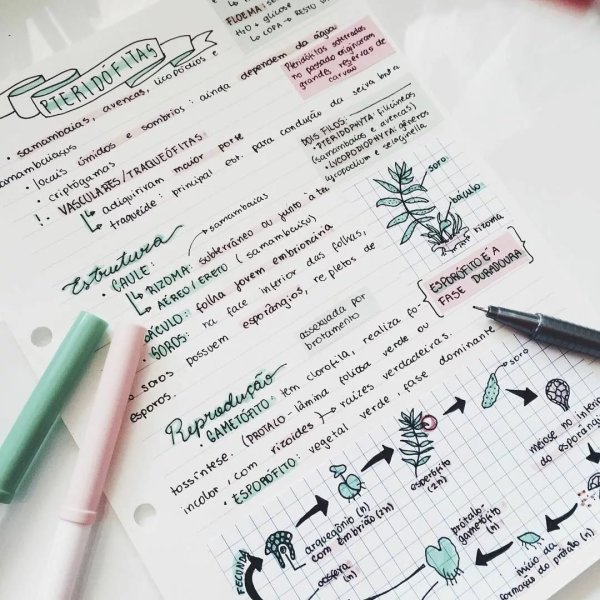 FLOEMA:
H₂O + glicose
↳ COPA → RESTO
PTERIDÓFITAS
• samambaias, avencas, licopódios e
samambaiaçus
• locais úmidos e sombrios: ainda dependem da água
• criptógamas
!. VASCULARES/TRAQUEÓFITAS:
↳ adquiriram maior porte
traqueíde: principal est. para condução da seiva bruta
Pteridófitas soterradas
no passado originaram
grandes reservas de
carvão
DOIS FILOS:
• PTERIDOPHYTA: filicíneas
(samambaias e avencas)
• LYCOPODIOPHYTA: gêneros
lycopodium e selaginella
Estrutura
• CAULE:
samambaias
↳ RIZOMA: subterrâneo ou junto à
↳ AÉREO/ERETO (samambaiaçu)
BÁCULO: folha jovem embrionária
• SOROS: na face inferior das folhas,
os soros possuem esporângios, repletos de
esporos.
soro
báculo
rizoma
ESPORÓFITO É A
FASE DURADOURA
assexuada por
brotamento
Reprodução
• GAMETÓFITO: tem clorofila, realiza fo-
tossíntese. (PROTALO - lâmina foliosa verde ou
incolor, com rizoides) → raízes verdadeiras.
• ESPORÓFITO: vegetal verde, fase dominante
FECUNDA
arquegônio (n)
com embrião (2n)
oosfera
(n)
esporófito
(2n)
soro
meiose no interior
do esporângio
início da
formação do prótalo (n)
prótalo-
gametófito
(n)